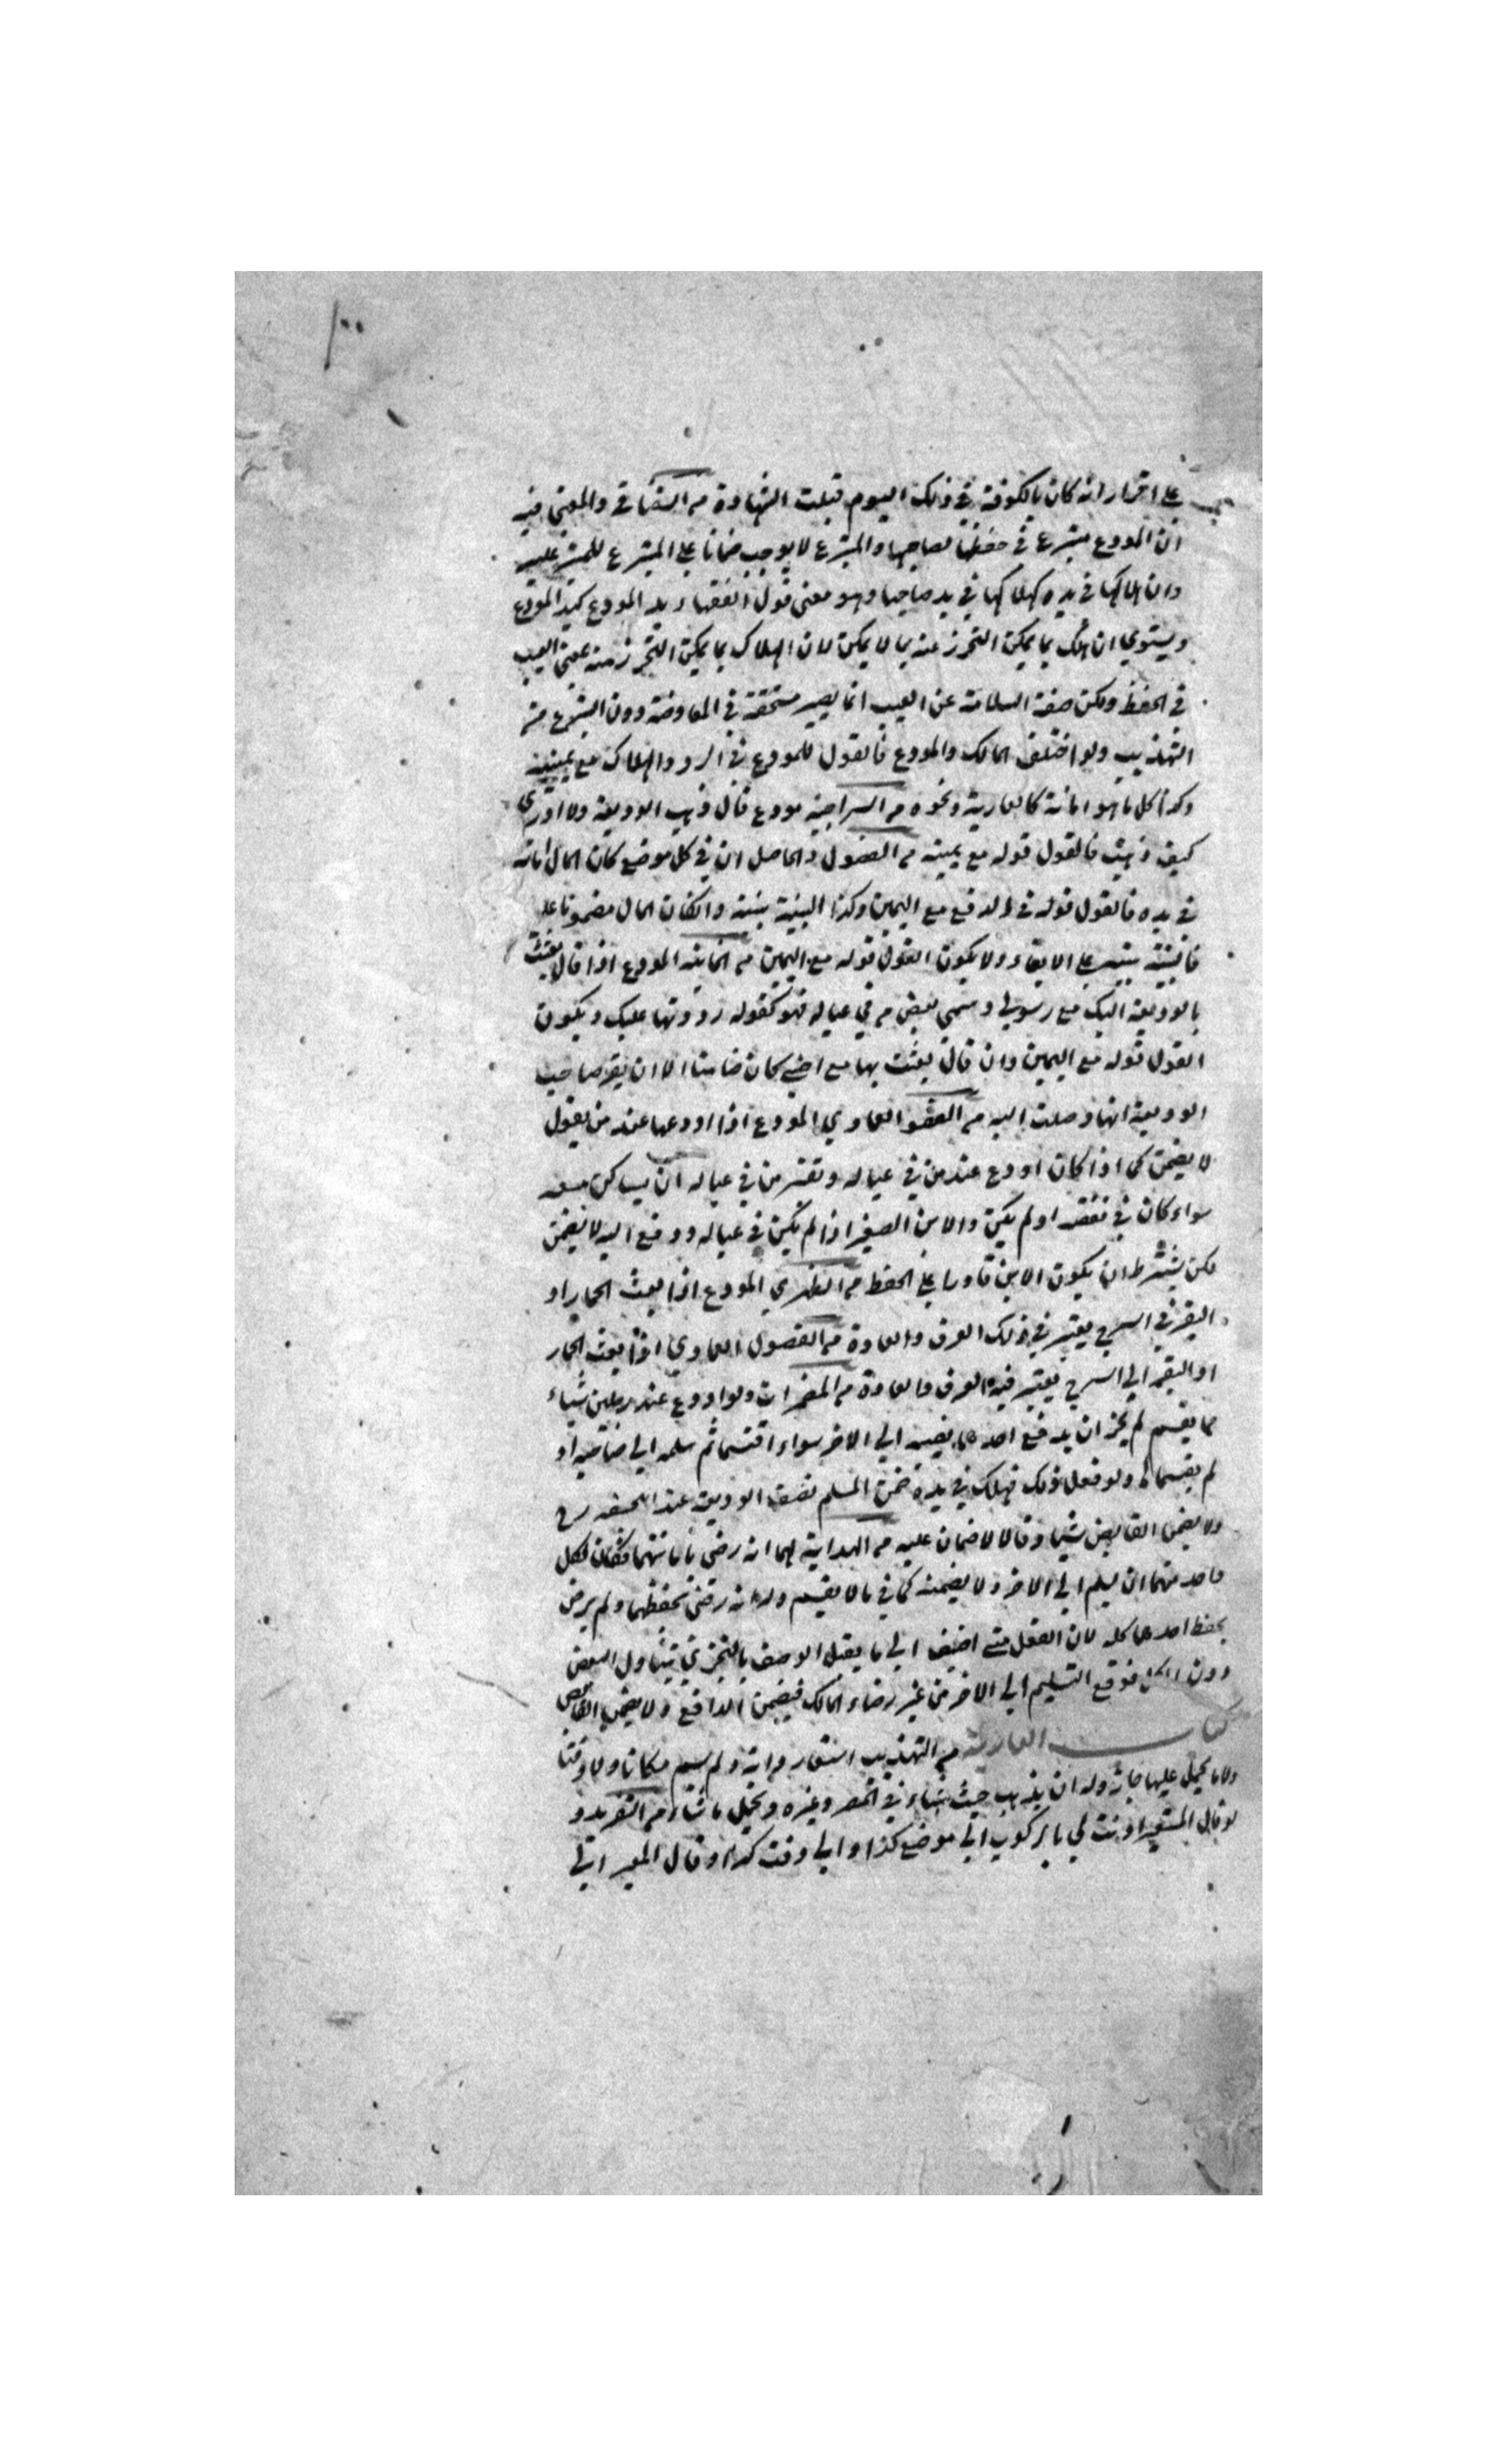 ١٠٠
على اقرار انه كان بالكوفة في ذلك اليوم قبلت الشهادة من الشفافي والمعنى فيه
ان المودع متبرع في حفظها لصاحبها والتبرع لا يوجب ضمانا على المتبرع للمتبرع عليه
وان هلاكها في يده كهلاكها في يد صاحبها وهو معنى قول الفقهاء يد المودع كيد المودع
ويستوي ان هلك بما يمكن التحرز عنه بما لا يمكن لان الهلاك بما يمكن التحرز منه بمعنى العيب
في الحفظ ولكن صفة السلامة عن العيب انما يصير مستحقة في المعاوضة دون التبرع من
التهذيب ولو اختلف المالك والمودع فالقول للمودع في الرد والهلاك مع يمينه
وكذا كل ما هو امانة كالعارية ونحوه من السراجية مودع قال ذهب الوديعة ولا ادري
كيف ذهبت فالقول قوله مع يمينه من الفصول والحاصل ان في كل موضع كان المال امانة
في يده فالقول قوله في الدفع مع اليمين وكذا البينة بينته وان كان المال مضمونا عليه
فالبينة بينته على الايفاء ولا يكون القول قوله مع اليمين من الخانية المودع اذا قال بعثت
بالوديعة اليك مع رسولي وسمى بعض من في عياله فهو كقوله رددتها عليك ويكون
القول قوله مع اليمين وان قال بعثت بها مع اجنبي كان ضامنا الا ان يقر صاحب
الوديعة انها وصلت اليه من العمادي المودع اذا اودعها عند من يقول
لا يضمن كما اذا كان اودع عند من في عياله وتفسير من في عياله ان يساكن معه
سواء كان في نفقته او لم يكن والابن الصغير اذا لم يكن في عياله ودفع اليه لا يضمن
لكن يشترط ان يكون الابن قادرا على الحفظ من الظهيري المودع اذا بعث الحمار او
البقر في السرح يعتبر في ذلك العرف والعادة من الفصول العمادي اذا بعث الحمار
او البقر الى السرح يعتبر فيه العرف والعادة من المضمرات ولو اودع عند رجلين شياء
مما يقسم لم يجز ان يدفع احدهما نصيبه الى الاخر سواء اقتسما ثم سلمه الى صاحبه او
لم يقسماه ولو فعل ذلك فهلك في يده ضمن المسلم نصف الوديعة عند
ولا يضمن القابض شيئا وقالا لا ضمان عليه من الهداية لهما انه رضي بامانتهما فكان لكل
واحد منهما ان يسلم الى الاخر ولا يضمنه كما في ما لا يقسم وله انه رضي بحفظهما ولم يرض
بحفظ احدهما كله لان الفعل متى اضيف الى ما يقبل الوصف بالتجزي يتناول البعض
دون الكل فوقع التسليم الى الاخر من غير رضاء المالك فيضمن الدافع ولا يضمن القابض
كتاب العارية من التهذيب استعار دابة ولم يسم مكانا ولا وقتا
ولا ما يحمل عليها جاز وله ان يذهب حيث شاء في المصر وغيره ويحمل ما شاء من التفريد و
لو قال المستعير اذنت لي بالركوب الى موضع كذا والى وقت كذا وقال المعير الى